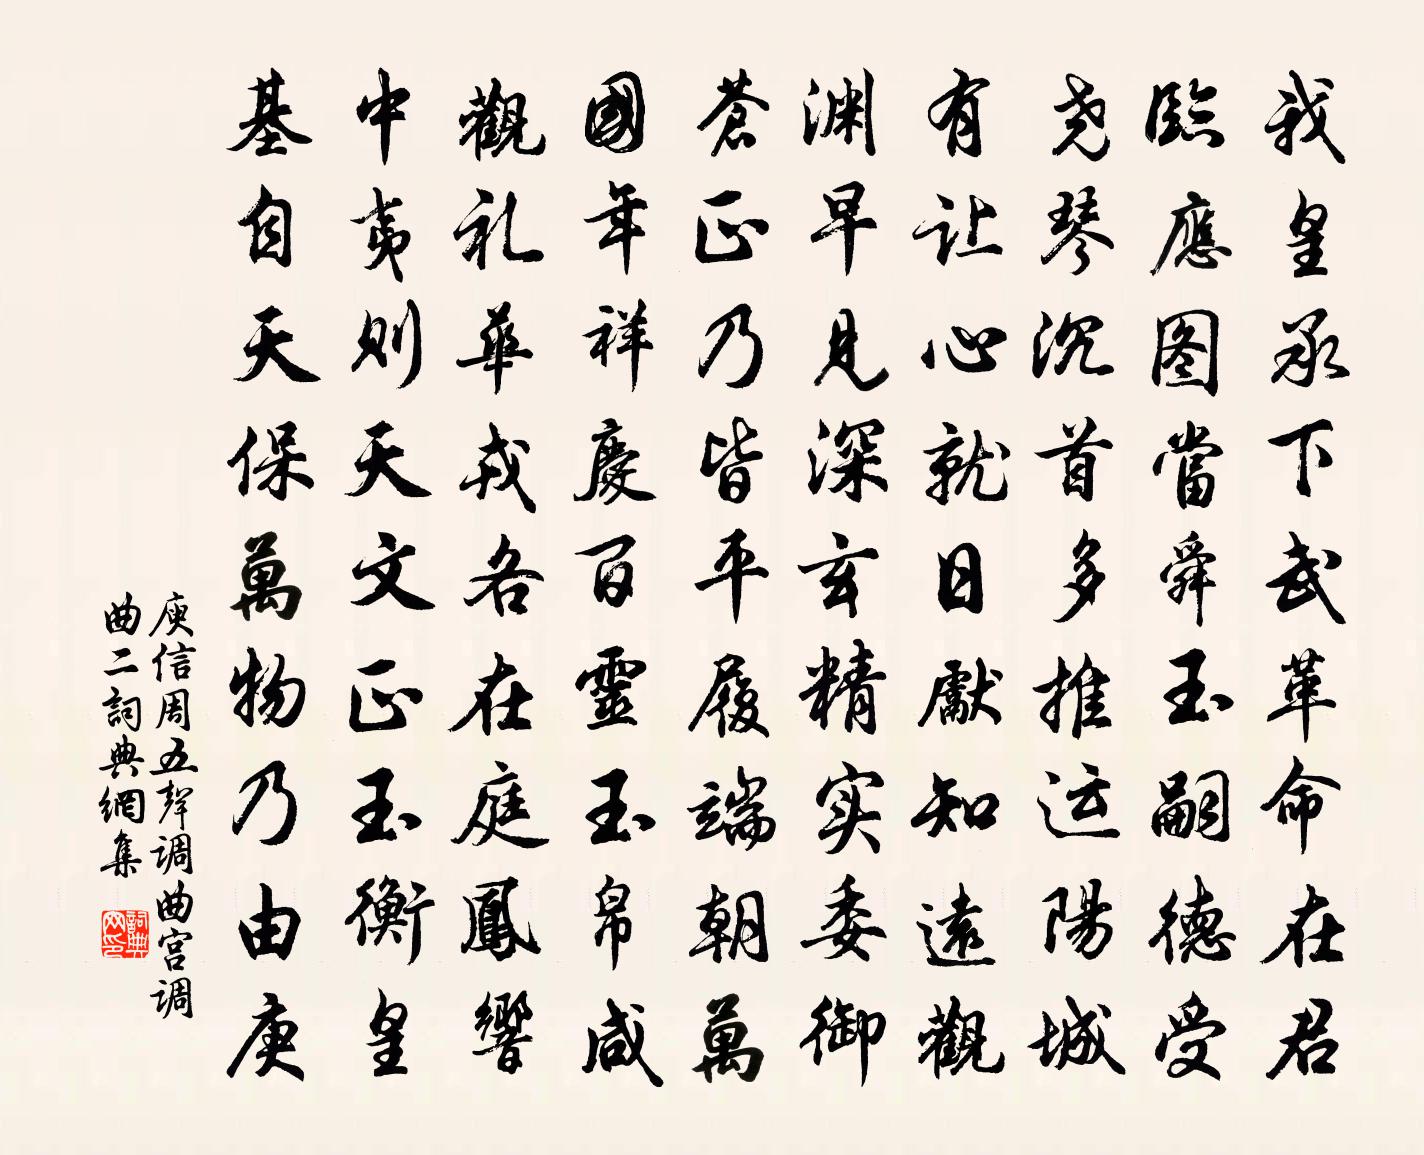 我皇承下武革命在君
臨應图當舜玉嗣德受
尧琴沉首多推运陽城
有让心就日獻知遠觀
渊早見深玄精实委御
蒼正乃皆平履端朝萬
國年祥慶百靈玉帛咸
觀礼華戎各在庭鳳響
中夷则天文正玉衡皇
基自天保萬物乃由庚
庾信周五聲调曲宫调
曲二詞典網集
詞典网印